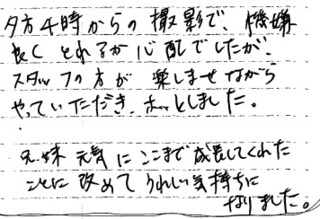 夕方4時からの撮影で、機嫌
良くとれるか心配でしたが、
スタッフの方が楽しませながら
やっていただき、ホッとしました。
兄妹元気にここまで成長してくれた
ことに改めてうれしい気持ちに
なりました。